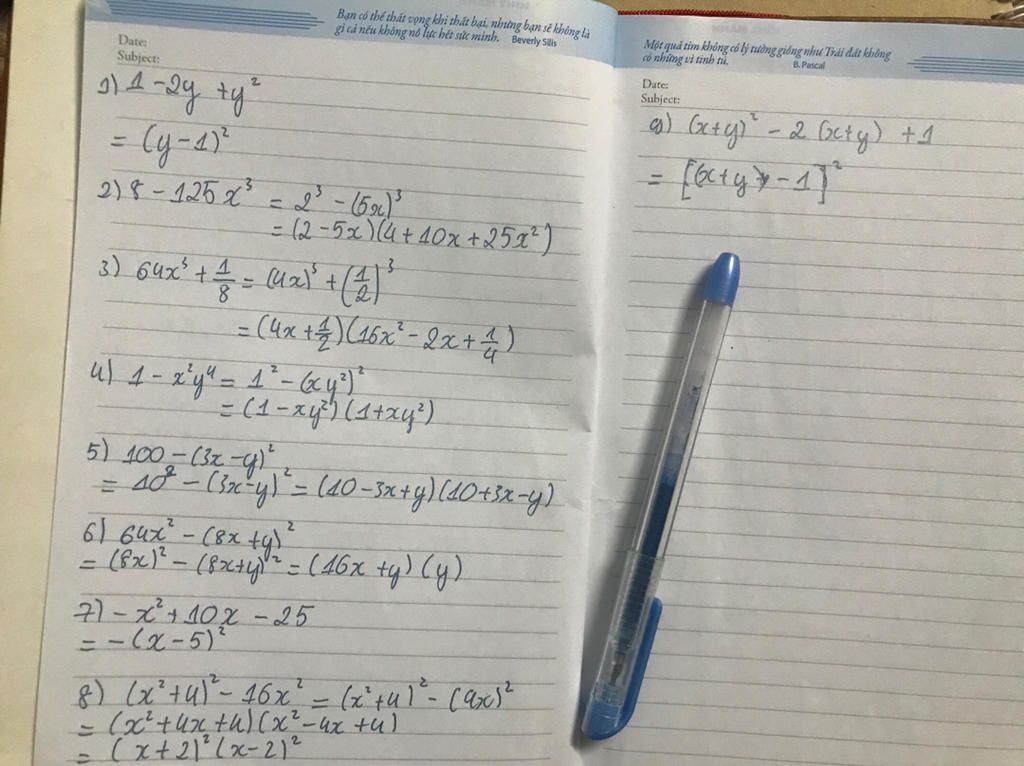 Bạn có thể thất vọng khi thất bại, nhưng bạn sẽ không là
gì cả nếu không nỗ lực hết sức mình. Beverly Sills
Date:
Subject:
1) 1 - 2y + y²
= (y - 1)²
2) 8 - 125x³ = 2³ - (5x)³
= (2 - 5x)(4 + 10x + 25x²)
3) 64x³ + 1/8 = (4x)³ + (1/2)³
= (4x + 1/2)(16x² - 2x + 1/4)
4) 1 - x²y⁴ = 1² - (xy²)²
= (1 - xy²)(1 + xy²)
5) 100 - (3x - y)²
= 10² - (3x - y)² = (10 - 3x + y)(10 + 3x - y)
6) 64x² - (8x + y)²
= (8x)² - (8x + y)² = (16x + y)(y)
7) - x² + 10x - 25
= - (x - 5)²
8) (x² + 4)² - 16x² = (x² + 4)² - (4x)²
= (x² + 4x + 4)(x² - 4x + 4)
= (x + 2)²(x - 2)²
Một quả tim không có lý tưởng giống như Trái đất không
có những vì tinh tú. B. Pascal
Date:
Subject:
9) (x + y)² - 2(x + y) + 1
= [(x + y) - 1]²